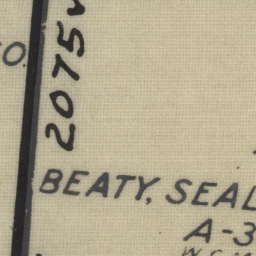 O.
2075v
BEATY, SEAL
A-3